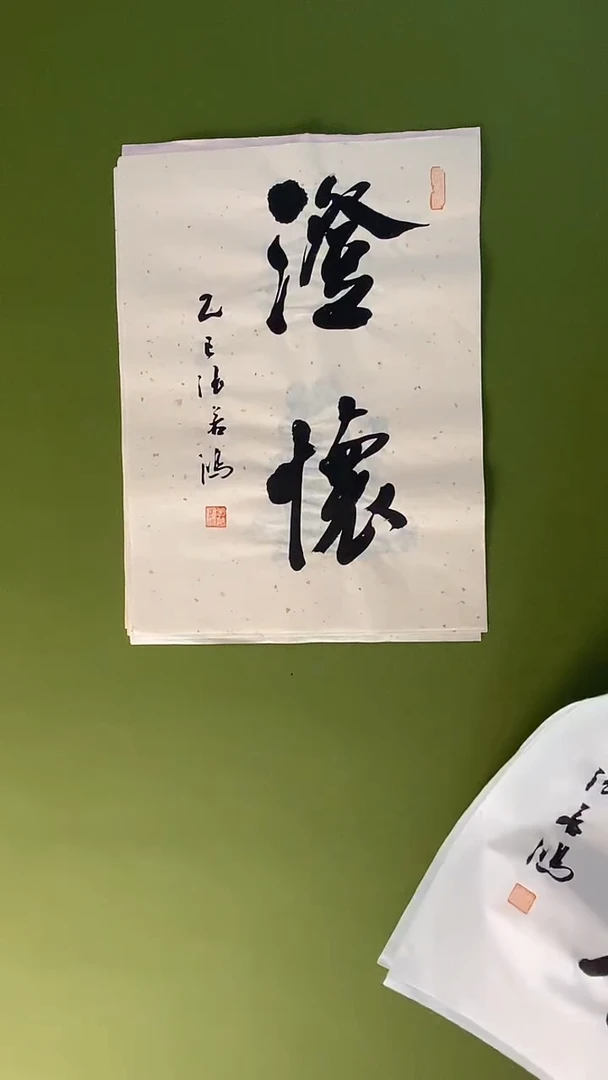 澄懷
乙巳張若鴻
若鴻